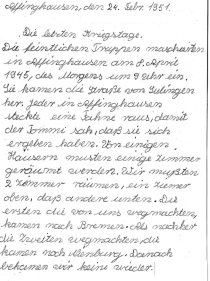 Affinghausen, den 24. Febr. 1951.
Die letzten Kriegstage.
Die feindlichen Truppen maschierten
in Affinghausen am 8. April
1945, des Morgens um 9 Uhr ein.
Sie kamen die Straße von Sulingen
her. Jeder in Affinghausen
steckte eine Fahne raus, damit
der Tommi sah, daß sie sich
ergeben haben. Von einigen
Häusern mußten einige Zimmer
geräumt werden. Wir mußten
2 Zimmer räumen, ein Zimmer
oben, daß andere unten. Die
ersten die von uns wegmachten,
kamen nach Bremen. Als nachher
die Zweiten wegmachten, die
kamen nach Nienburg. Danach
bekamen wir keine wieder.